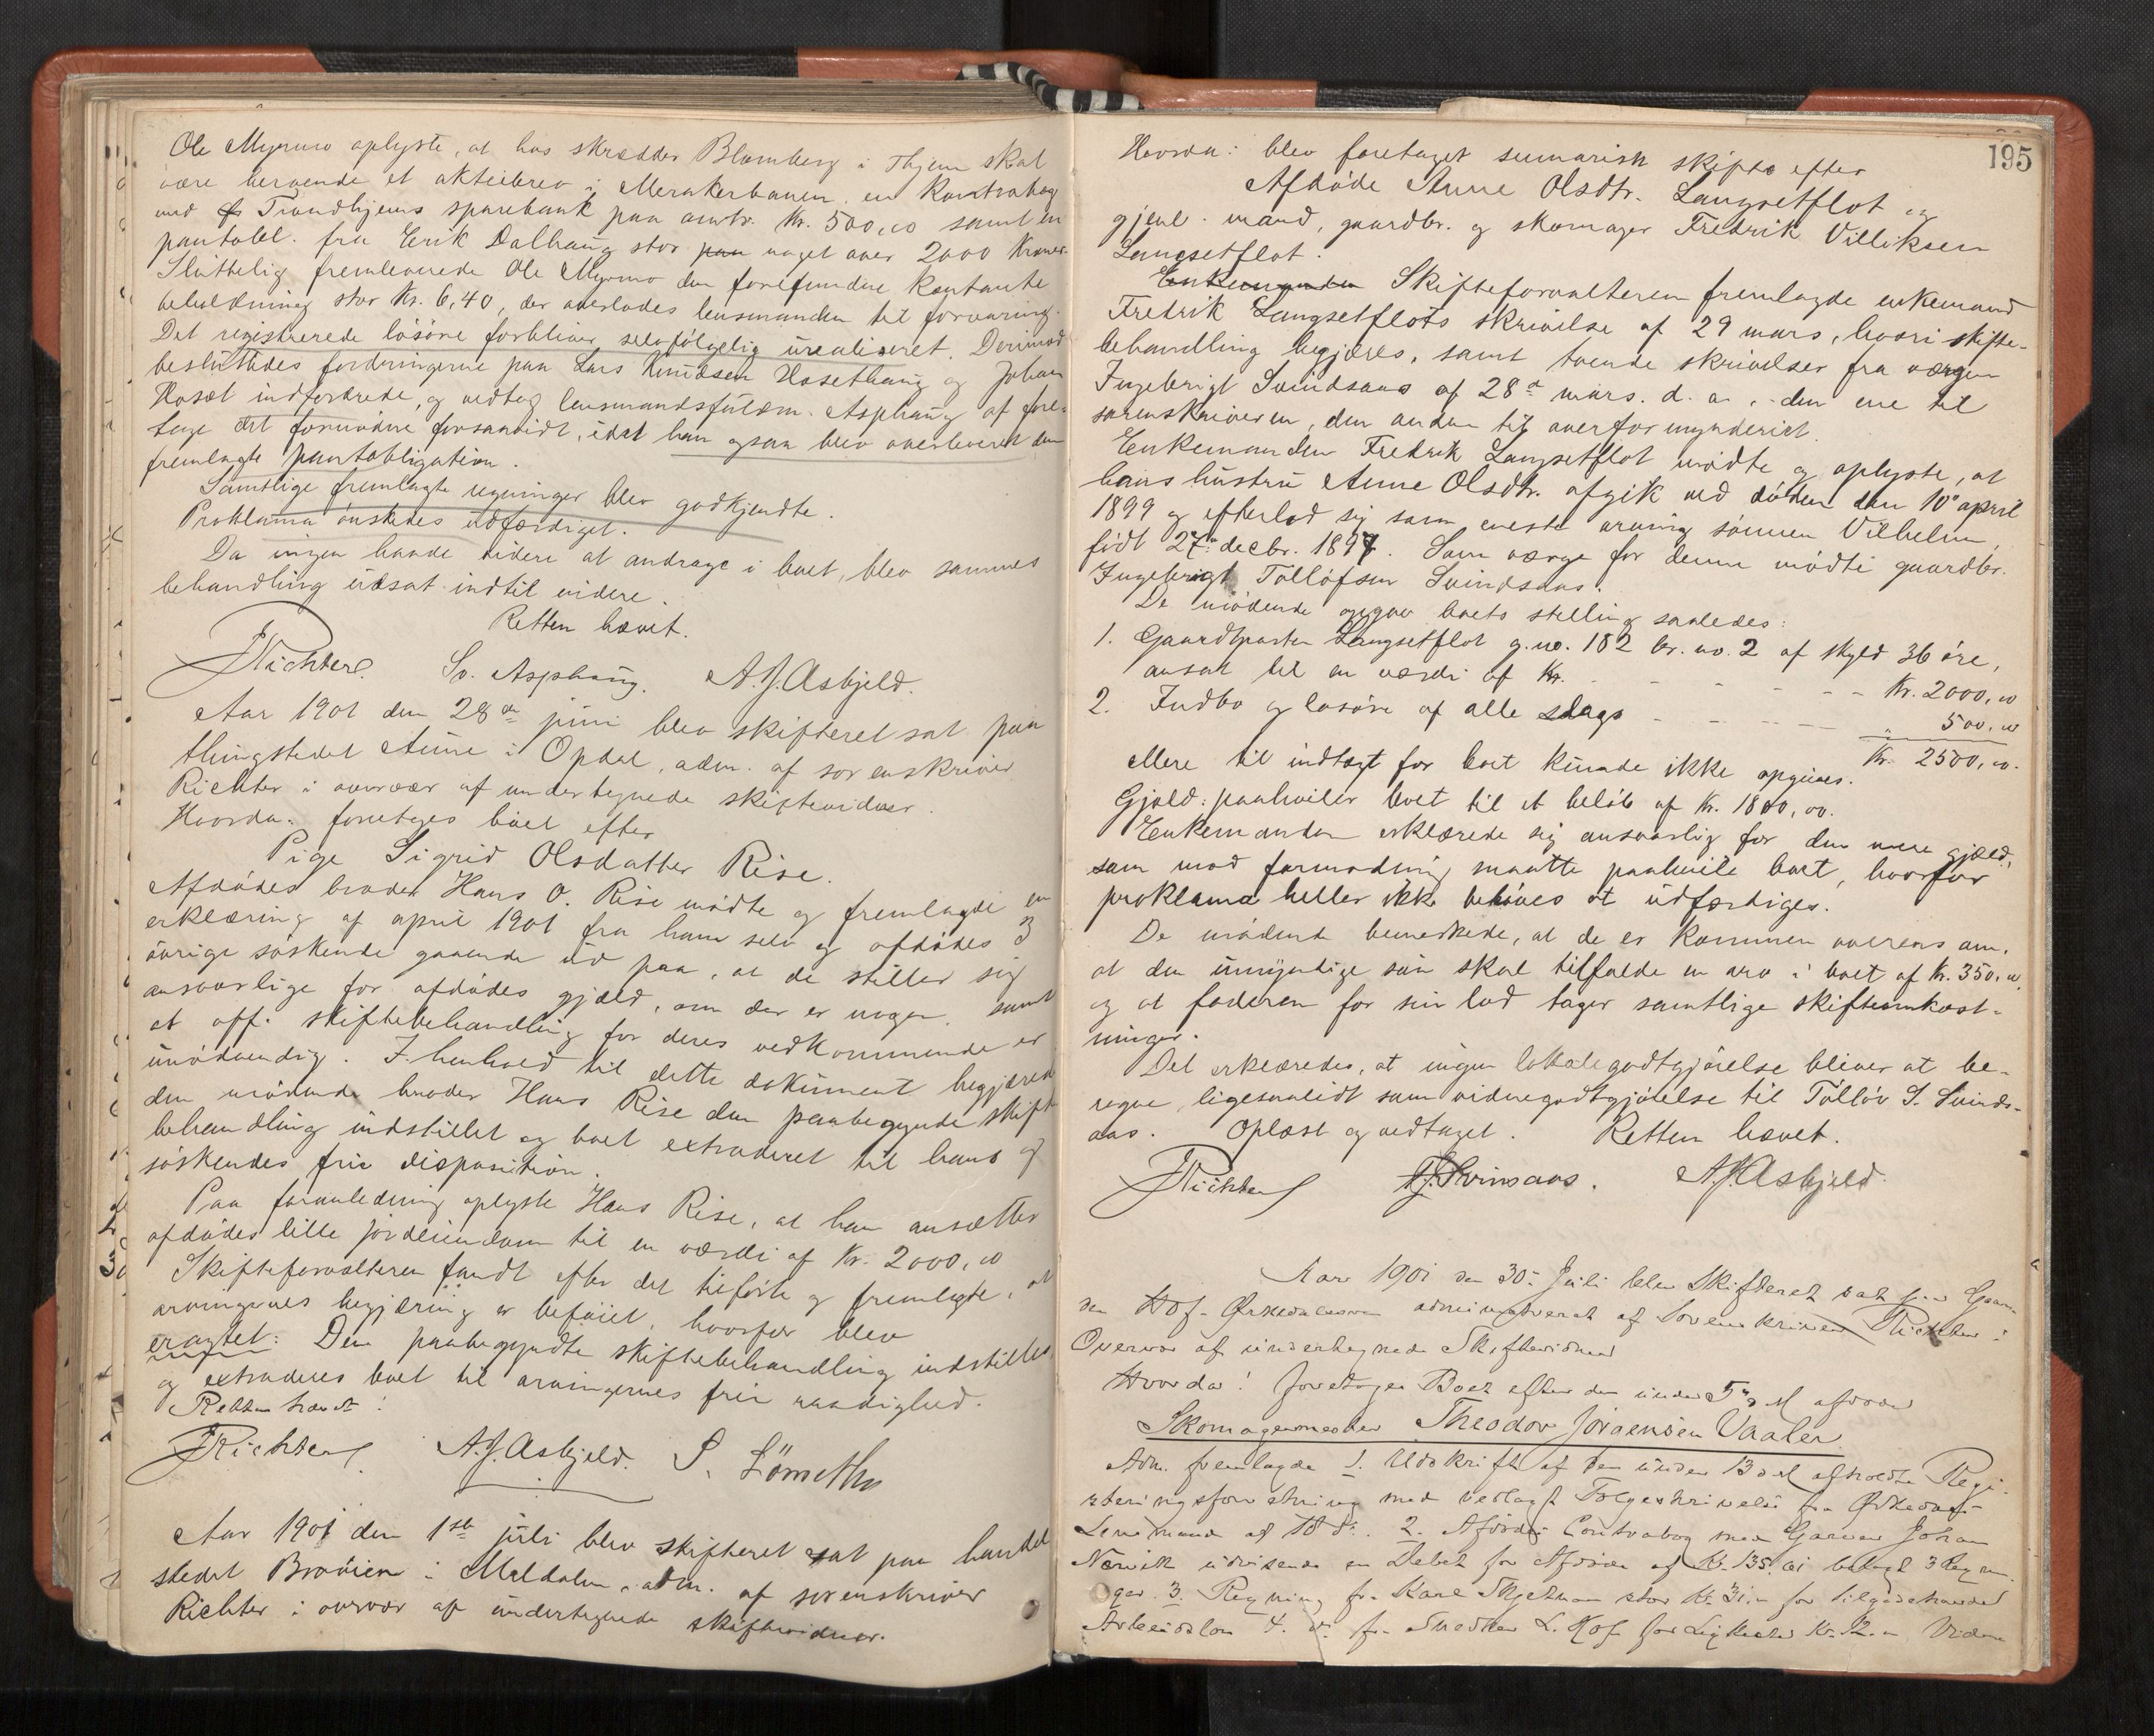 Ole Myrmo oplyste, at hos skrædder Blomberg i Thjem skal
være beroende et aktiebrev i Merakerbanen, en kontrabog
med Trondhjems sparebank paa omtr. Kr. 500,00 samt en
pantobl. fra Erik Dalhaug stor paa noget over 2000 Kroner.
Sluttelig fremleverede Ole Myrmo den forefundne kontante
beholdning stor Kr. 6,40, der overlodes lensmanden til forvaring.
Det registrerede løsøre forbliver selvfølgelig urealiseret. Derimod
besluttedes fordringerne paa Lars Knudsen Hosethaug og Johan
Hoset indfordrede, og vedtog lensmandsfuldm. Asphaug at fore-
tage det fornødne forsaavidt, idet han ogsaa blev overleveret den
fremlagte pantobligation.
Samtlige fremlagte regninger blev godkjendte.
Proklama ønskedes udfærdiget.
Da ingen havde videre at andrage i boet, blev sammes
behandling udsat indtil videre.
Retten hævet.
Richter. Sv. Asphaug. A. J. Asbjeld.
Aar 1901 den 28de juni blev skifteret sat paa
thingstedet Aune i Opdal, adm. af sorenskriver
Richter i overvær af undertegnede skiftevidner.
Hvorda: foretoges boet efter
Pige Sigrid Olsdatter Rise.
Afdødes broder Hans O. Rise mødte og fremlagde en
erklæring af april 1901 fra ham selv og afdødes 3
øvrige søskende gaaende ud paa, at de stiller sig
ansvarlige for afdødes gjæld, om der er nogen, samt
at off. skiftebehandling for deres vedkommende er
unødvendig. I henhold til dette dokument begjærede
den mødende broder Hans Rise den paabegyndte skifte
behandling indstillet og boet extraderet til hans og
søskendes frie disposition.
Paa foranledning oplyste Hans Rise, at han ansætter
afdødes lille jordeiendom til en værdi af Kr. 2000,00
Skifteforvalteren fandt efter det tilførte og fremlagte, at
arvingernes begjæring er beføiet, hvorfor blev
eragtet: Den paabegyndte skiftebehandling indstilles
og extraderes boet til arvingernes frie raadighed.
Retten hævet.
Richter A. J. Asbjeld. S.
Aar 1901 den 1ste juli blev skifteret sat paa handel
stedet i Meldalen, adm. af sorenskriver
Richter i overvær af undertegnede skiftevidner.
195
Hvorda: blev foretaget sumarisk skifte efter
Afdøde Anne Olsdtr. Langsetflot og
gjenl. mand, gaardbr. og skomager Fredrik Villiksen
Langsetflot.
Enkemanden Skifteforvalteren fremlagde enkemand
Fredrik Langsetflots skrivelse af 29 mars, hvori skifte-
behandling begjæres, samt tvende skrivelser fra værgen
Ingebrigt Svindsaas af 28de mars d. a., den ene til
sorenskriveren, den anden til overformynderiet.
Enkemanden Fredrik Langsetflot mødte og oplyste, at
hans hustru Anne Olsdtr. afgik ved døden den 10de april
1899 og efterlod sig som eneste arving sønnen Vilhelm,
født 27de decbr. 1897. Som værge for denne mødte gaardbr.
Ingebrigt Tollofsen Svindsaas.
De mødende opgav boets stilling saaledes:
1. Gaardparten Langsetflot g. no. 182 br. no. 2 af skyld 36 øre,
ansat til en værdi af Kr. - - - - - - Kr. 2000,00
2. Indbo og løsøre af alle slags - - - - - " 500,00
Kr. 2500,00.
Mere til indtægt for boet kunde ikke opgives.
Gjæld: paahviler boet til et beløb af Kr. 1800,00.
Enkemanden erklærede sig ansvarlig for den mere gjæld,
som mod formodning maatte paahvile boet, hvorfor
proklama heller ikke behøves at udfærdiges.
De mødende bemerkede, at de er kommen overens om,
at den umyndige søn skal tilfalde en arv i boet af Kr. 350,00,
og at faderen for sin lod tager samtlige skifteomkost-
ninger.
Det erklæredes, at ingen lokalegodtgjørelse bliver at be-
regne, ligesaalidt som vidnegodtgjørelse til Tolløv I. Svinds-
aas. Oplæst og vedtaget. Retten hævet.
Richter T. J. Svinsaas. A. J. Asbjeld.
Aar 1901 den 30. Juli blev Skifteret sat paa Gaar
den Hof - Ørkedalsøren administreret af Sorenskriver Richter i
Overvær af undertegnede Skiftevidner
Hvorda! foretoges Boet efter den under afdøde
Skomagermester Theodor Jørgensen Vaaler
Adm. fremlagde 1. Udskrift af den under 13 d M afholdte Regi-
streringsforretning med vedlagt Følgeskrivelse fra Ørkedals
Lensmand af 18 ds. 2. Afdødes Contrabog med Garver Johan
Nervik udvisende en Debet for Afdøde af Kr. 135. bilagt 3 Regnin-
ger. 3. Regning fra Karl stor Kr. 31,00 for tilgodehavende
Arbeidsløn 4. do. fra Snedker L. Hof for Ligkiste Kr. 12.00 Videre